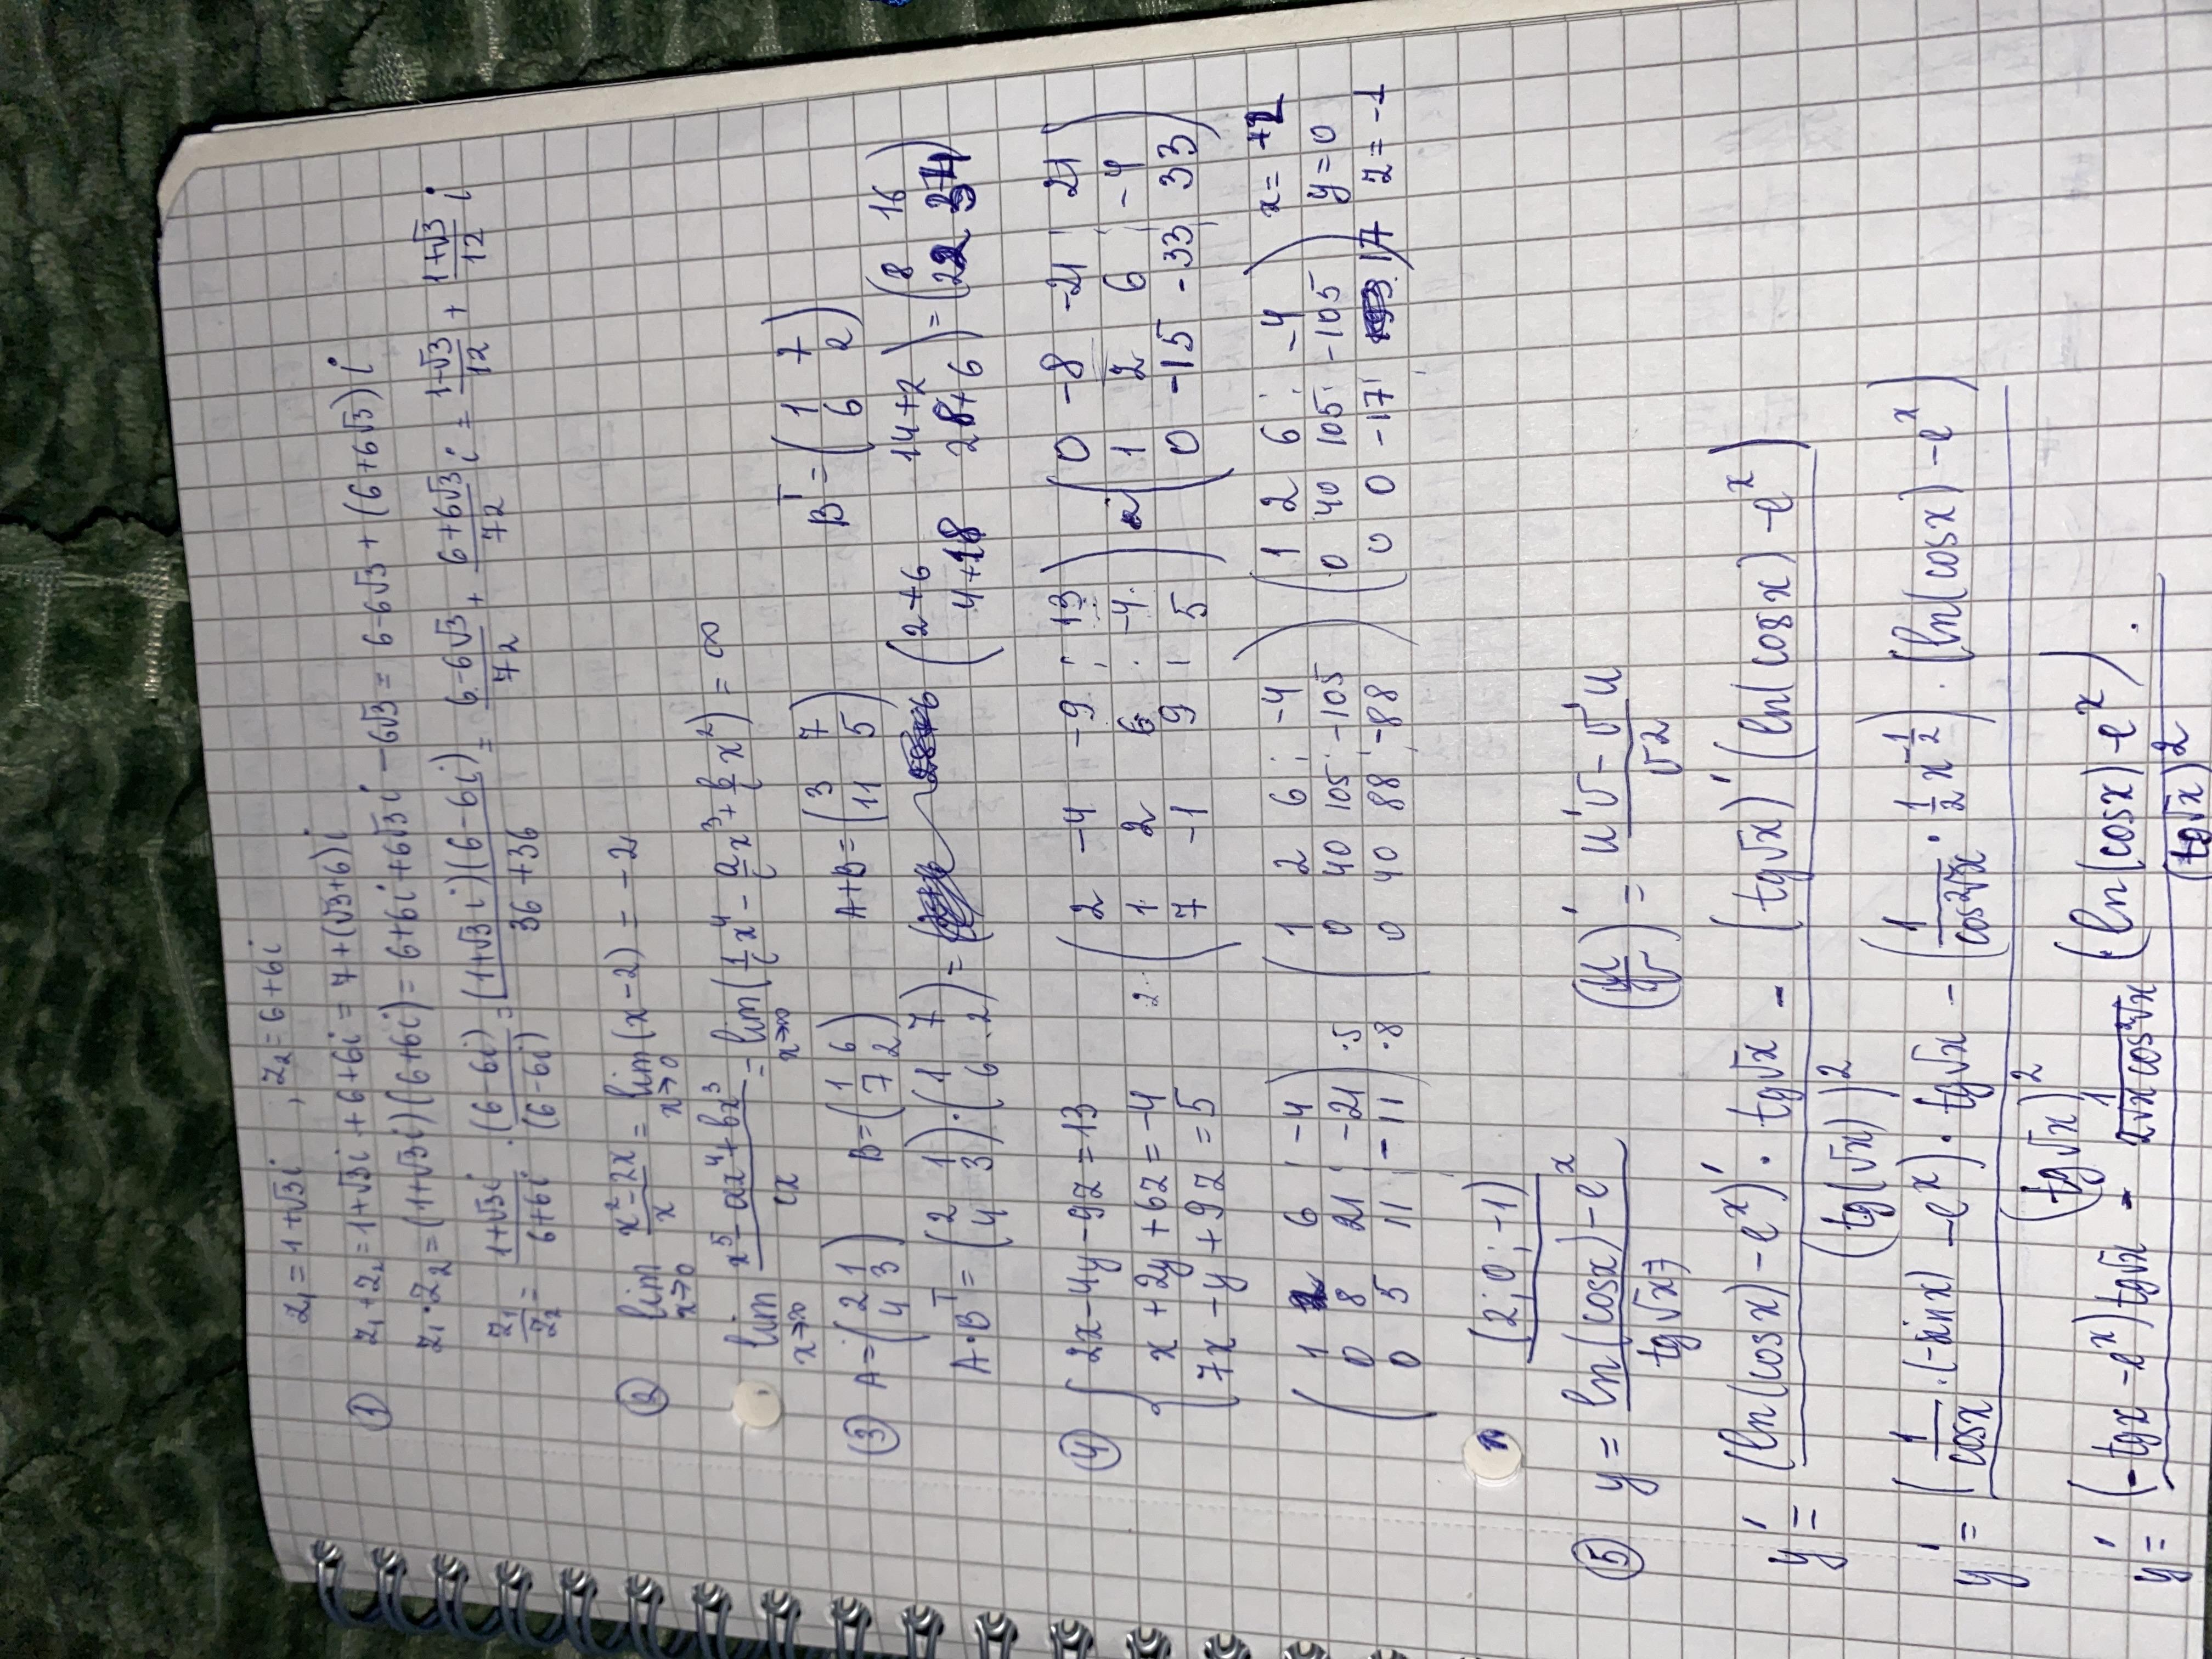 z₁ = 1+√3i , z₂ = 6+6i
① z₁+z₂ = 1+√3i + 6+6i = 7+(√3+6)i
z₁·z₂ = (1+√3i)(6+6i) = 6+6i+6√3i - 6√3 = 6-6√3 + (6+6√3)i
z₁/z₂ = (1+√3i)/(6+6i) · (6-6i)/(6-6i) = (1+√3i)(6-6i)/(36+36) = (6-6√3)/72 + (6+6√3)/72 i = (1-√3)/12 + (1+√3)/12 i
② lim x→0 (x²-2x)/x = lim x→0 (x-2) = -2
lim x→∞ (x⁵-ax⁴+bx³)/cx = lim x→∞ (1/c x⁴ - a/c x³ + b/c x²) = ∞
③ A=(2 1; 4 3) B=(1 6; 7 2) A+B=(3 7; 11 5) Bᵀ=(1 7; 6 2)
A·Bᵀ = (2 1; 4 3)·(1 7; 6 2) = (2+6 14+2; 4+18 28+6) = (8 16; 22 34)
④ { 2x-4y-9z=13 (2 -4 -9 ¦ 13) (0 -8 -21 ¦ 21)
x+2y+6z=-4 (1 2 6 ¦ -4) (1 2 6 ¦ -4)
7x-y+9z=5 (7 -1 9 ¦ 5) (0 -15 -33 ¦ 33)
(1 2 6 ¦ -4) (1 2 6 ¦ -4) (1 2 6 ¦ -4) x=+2
(0 8 21 ¦ -21) ·5 (0 40 105 ¦ -105) (0 40 105 ¦ -105) y=0
(0 5 11 ¦ -11) ·8 (0 40 88 ¦ -88) (0 0 -17 ¦ 17) z=-1
(2; 0; -1)
⑤ y = (ln(cosx)-eˣ)/(tg√x) (u/v)' = (u'v-v'u)/v²
y' = ((ln(cosx)-eˣ)'·tg√x - (tg√x)'(ln(cosx)-eˣ))/(tg(√x))²
y' = ((1/cosx·(-sinx)-eˣ)·tg√x - (1/cos²√x · 1/2 x^(-1/2))·(ln(cosx)-eˣ))/(tg√x)²
y' = ((-tgx-eˣ)tg√x - 1/(2√x cos²√x) ·(ln(cosx)-eˣ))/(tg√x)² .